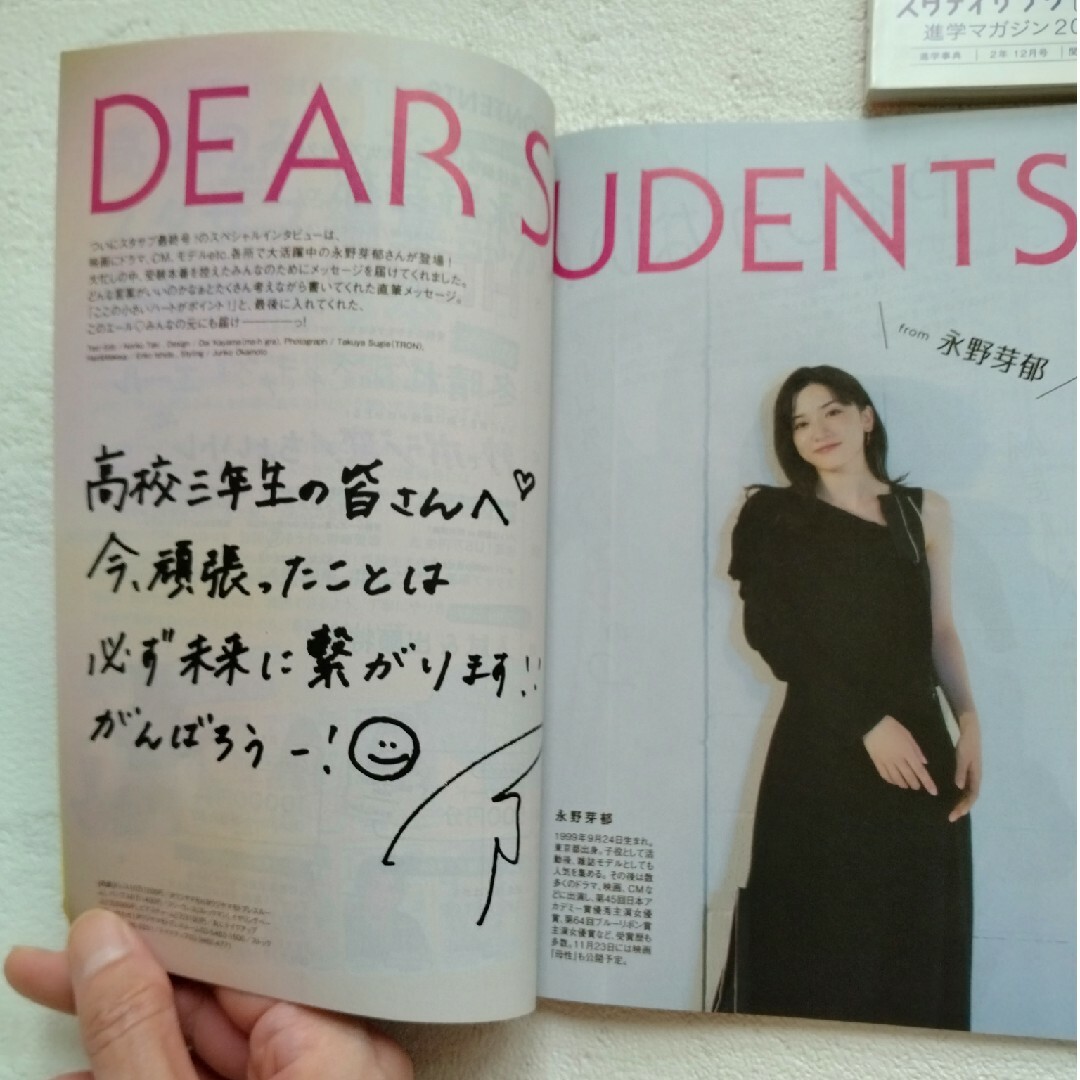 進学マガジン20
進学事典 2年 12月号
DEAR S UDENTS
ついにスタサプ最終号!のスペシャルインタビューは、
映画にドラマ、CM、モデルetc.各所で大活躍中の永野芽郁さんが登場!
大忙しの中、受験本番を控えたみんなのためにメッセージを届けてくれました。
どんな言葉がいいのかなぁとたくさん考えながら書いてくれた直筆メッセージ。
「ここの小さいハートがポイント!」と、最後に入れてくれた、
このエール♡みんなの元にも届け————っ!
Photograph / Takuya Sugie(TRON),
Styling / Junko Okamoto
from 永野芽郁
高校三年生の皆さんへ♡
今、頑張ったことは
必ず未来に繋がります!!
がんばろうー!
永野芽郁
1999年9月24日生まれ。
東京都出身。子役として活
動後、雑誌モデルとしても
人気を集める。その後は数
多くのドラマ、映画、CMな
どに出演し、第45回日本ア
カデミー賞優秀主演女優
賞、第64回ブルーリボン賞
主演女優賞など、受賞歴も
多数。11月23日には映画
『母性』も公開予定。